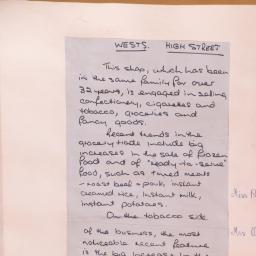 WESTS. HIGH STREET
This shop, which has been
in the same family for over
32 years, is engaged in selling
confectionery, cigarettes and
tobacco, groceries and
fancy goods.
Recent trends in the
grocery trade include big
increases in the sale of frozen
food and of "ready-to-serve"
food, such as tinned meats
- roast beef + pork, instant
creamed rice, instant milk,
instant potatoes.
On the tobacco side
of the business, the most
noticeable recent feature
is the big increase in the
Miss
Mrs